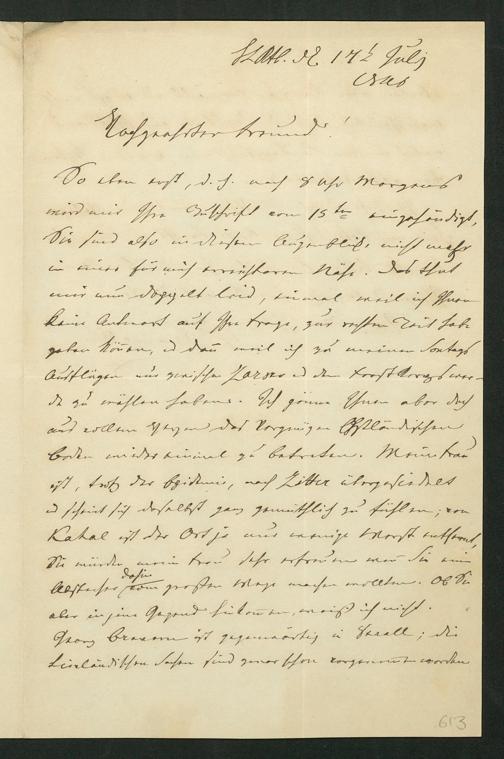 StPtb. d 17t Julj
1848
Hochgeehrter Freund!
So eben erst, d. h. nach 8 Uhr Morgens
wird mir Ihre Zuschrift vom 15ten eingehändigt,
Sie sind also in diesem Augenblick nicht mehr
in einer für mich erreichbaren Nähe. Das thut
mir nun doppelt leid, einmal weil ich Ihnen
keine Antwort auf Ihre Frage, zur rechten Zeit habe
geben können, u dann weil ich zu meinen Sontags
Ausflügen nur zwischen Zarsk u dem
zu wählen habe. Ich gönne Ihnen aber doch
aus vollem Herzen das Vergnügen Ehstländischen
Boden wieder einmal zu betreten. Meine Frau
ist, trotz der Epidemie, nach Zitter übergesiedelt
u scheint sich daselbst ganz gemüthlich zu fühlen; von
Kakal ist der Ort ja nur wenige Werst entfernt,
Sie würden meine Frau sehr erfreuen wenn Sie einen
Abstecher dahin vom großen Wege machen wollten. Ob Sie
aber in jene Gegend hinkommen, weiß ich nicht.
Georg Brevern ist gegenwärtig in
Livländischen Sachen sind zwar schon vorgenommen worden
653